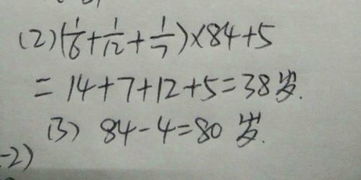 (2)(1/6+1/12+1/7)×84+5
=14+7+12+5=38岁.
(3) 84-4=80 岁.
-2)